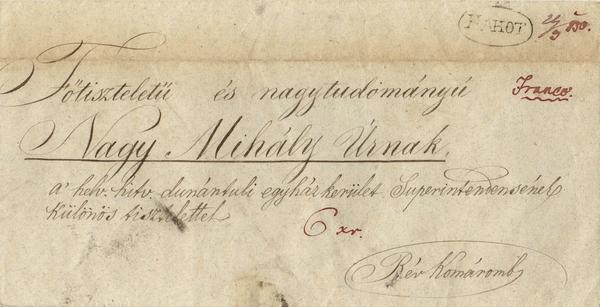 NAKOT
24/9 850.
Főtiszteletű és nagytudományú
Franco.
Nagy Mihály Úrnak,
a' helv. hitv. dunántuli egyházkerület Superintendensének
különös tisztelettel
6 xr.
Rév Komáromb